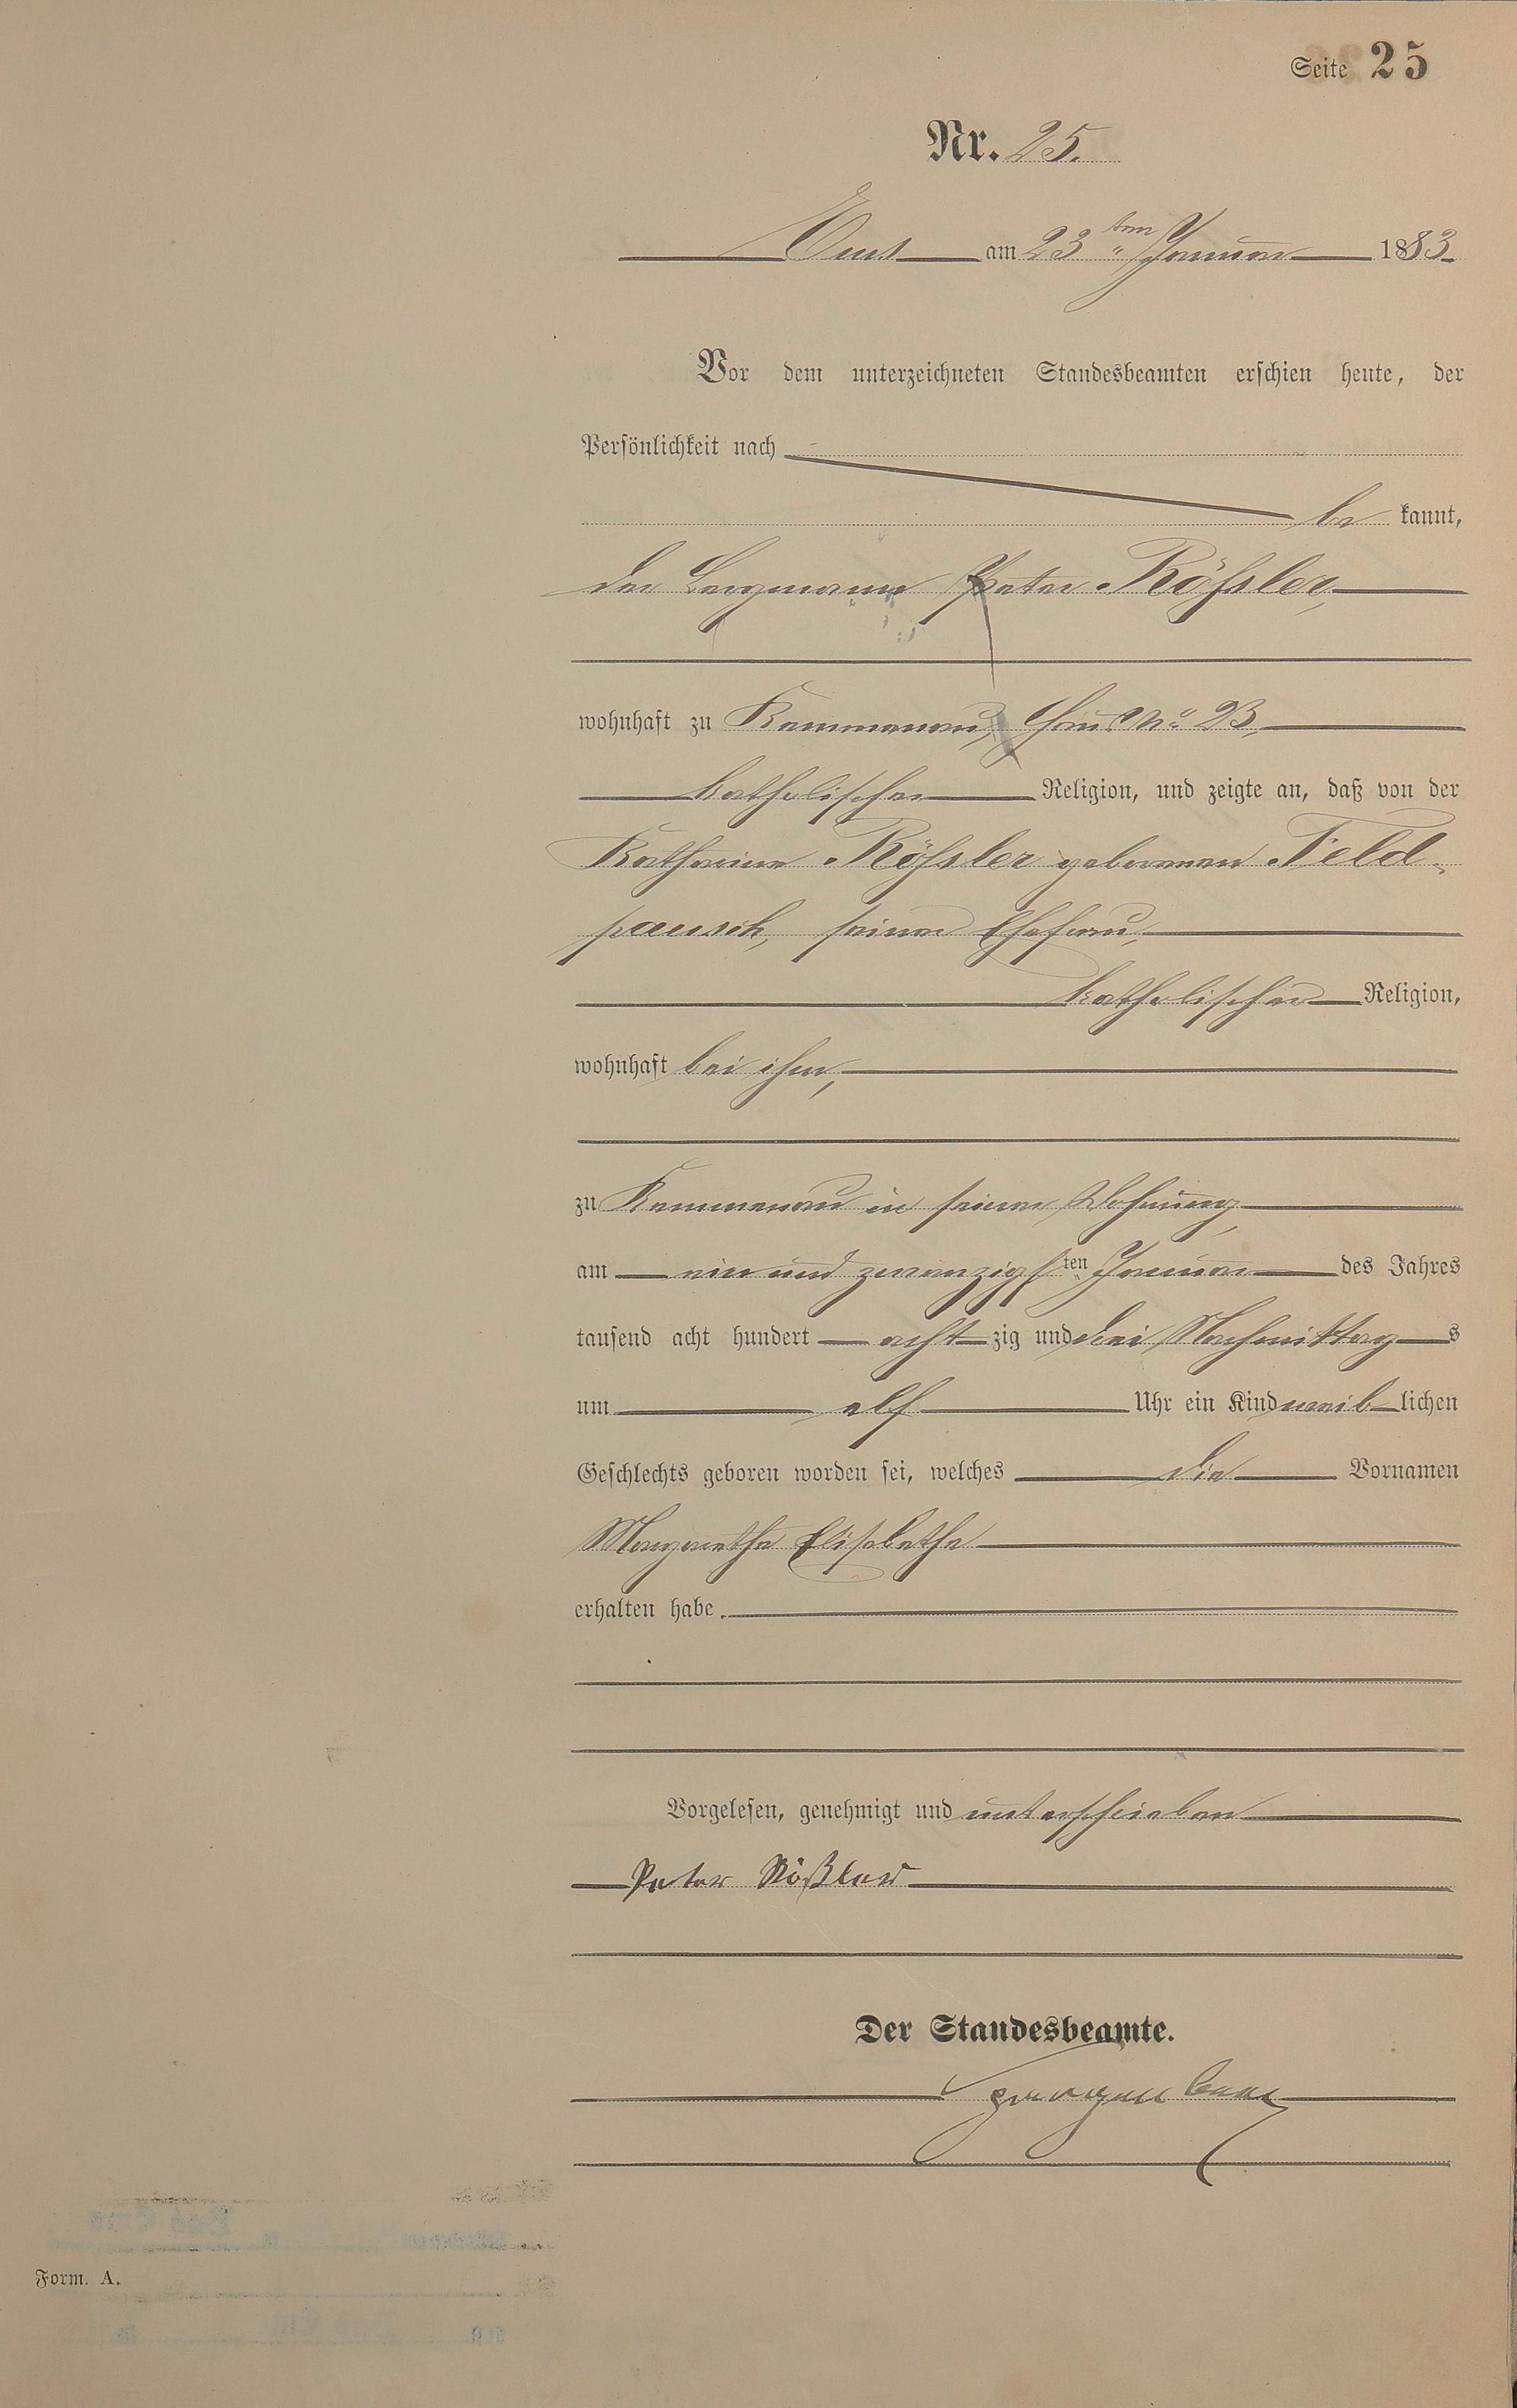 Seite 25
Nr. 25.
Ems am 23ten Januar 1883
Vor dem unterzeichneten Standesbeamten erschien heute, der
Persönlichkeit nach
be kannt,
der Bergmann Peter Rößler,
wohnhaft zu Kemmenau, Haus No 23,
katholischer Religion, und zeigte an, daß von der
Katharine Rößler geborenen Feld-
pausch, seiner Ehefrau,
katholischer Religion,
wohnhaft bei ihm,
zu Kemmenau in seiner Wohnung,
am ein und zwanzigsten Januar des Jahres
tausend acht hundert acht zig und drei Nachmittag s
um elf Uhr ein Kind weib lichen
Geschlechts geboren worden sei, welches die Vornamen
Margarethe Elisabethe
erhalten habe.
Vorgelesen, genehmigt und unterschrieben
Peter Rößler
Der Standesbeamte.
Form. A.